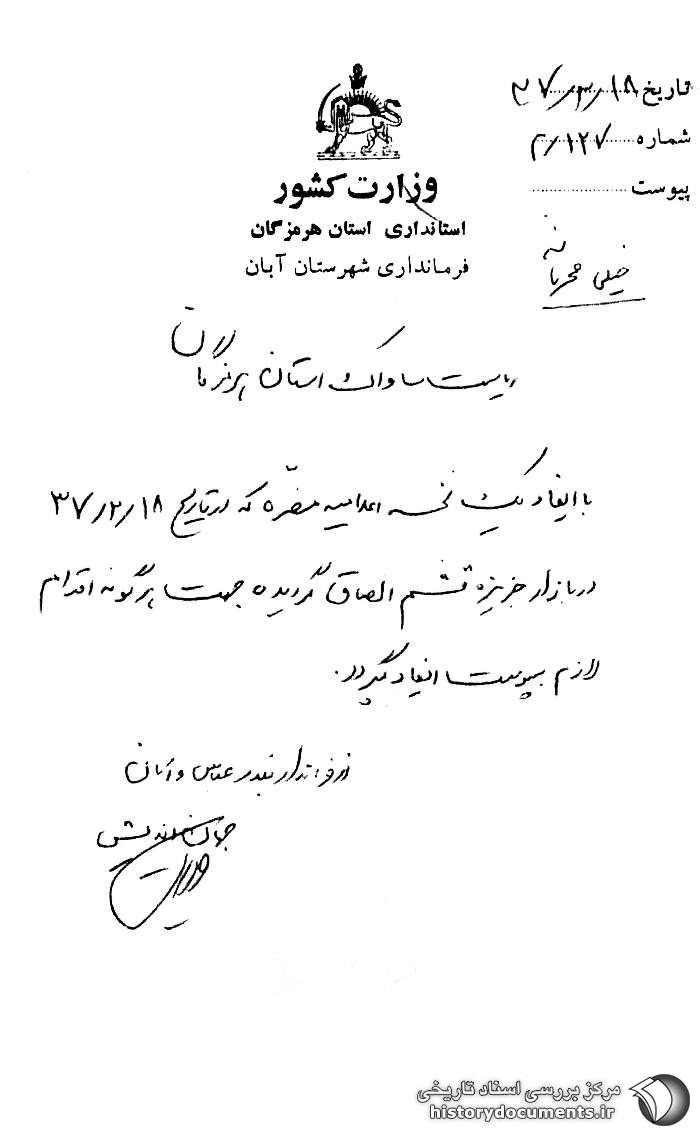 تاریخ ۳۷/۳/۱۸
شماره ۲/۱۲۷
پیوست
وزارت کشور
استانداری استان هرمزگان
فرمانداری شهرستان آبان
خیلی محرمانه
ریاست ساواک استان هرمزگان
با ایفاد یک نسخه اعلامیه مضره که در تاریخ ۳۷/۲/۱۸
در بازار جزیره قشم الصاق گردیده جهت هرگونه اقدام
لازم بپیوست ایفاد میگردد.
فرماندار بندرعباس و آبان
جهان اندیش
مرکز بررسی اسناد تاریخی
historydocuments.ir